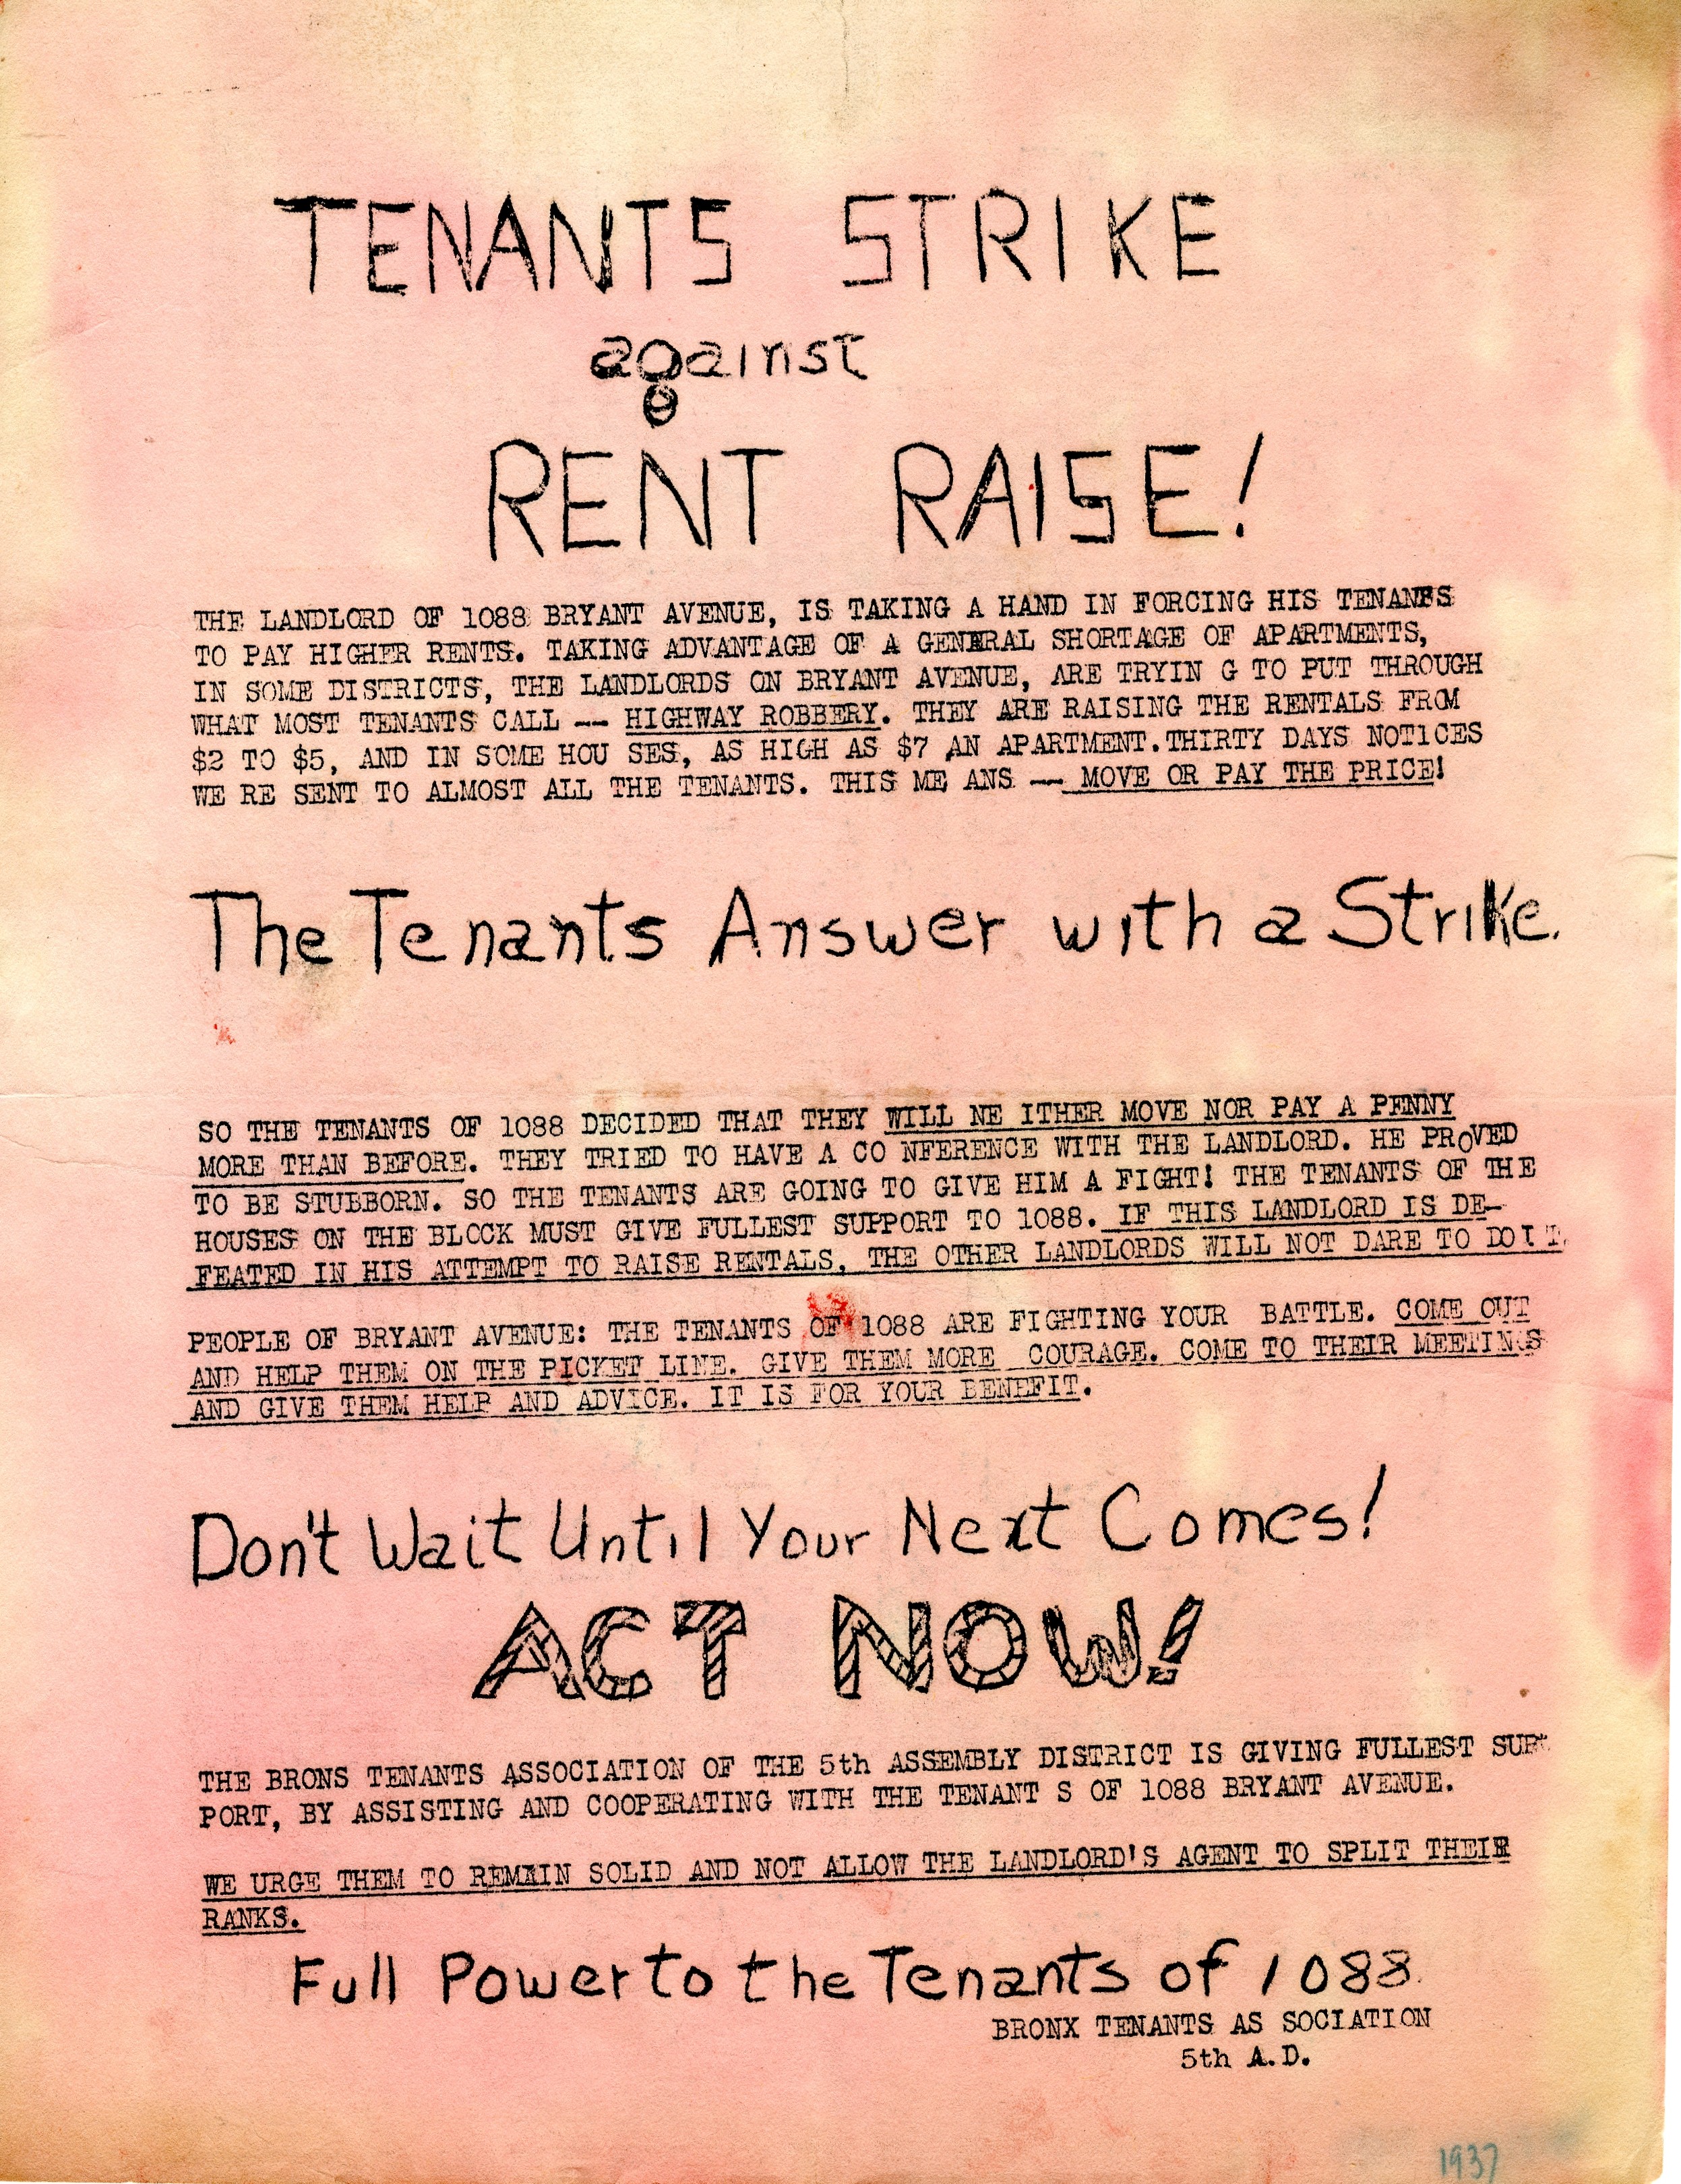 TENANTS STRIKE
against
RENT RAISE!
THE LANDLORD OF 1088 BRYANT AVENUE, IS TAKING A HAND IN FORCING HIS TENANTS
TO PAY HIGHER RENTS. TAKING ADVANTAGE OF A GENERAL SHORTAGE OF APARTMENTS,
IN SOME DISTRICTS, THE LANDLORDS ON BRYANT AVENUE, ARE TRYIN G TO PUT THROUGH
WHAT MOST TENANTS CALL -- HIGHWAY ROBBERY. THEY ARE RAISING THE RENTALS FROM
$2 TO $5, AND IN SOME HOU SES, AS HIGH AS $7 AN APARTMENT.THIRTY DAYS NOTICES
WE RE SENT TO ALMOST ALL THE TENANTS. THIS ME ANS -- MOVE OR PAY THE PRICE!
The Tenants Answer with a Strike.
SO THE TENANTS OF 1088 DECIDED THAT THEY WILL NE ITHER MOVE NOR PAY A PENNY
MORE THAN BEFORE. THEY TRIED TO HAVE A CO NFERENCE WITH THE LANDLORD. HE PROVED
TO BE STUBBORN. SO THE TENANTS ARE GOING TO GIVE HIM A FIGHT! THE TENANTS OF THE
HOUSES ON THE BLOCK MUST GIVE FULLEST SUPPORT TO 1088. IF THIS LANDLORD IS DE-
FEATED IN HIS ATTEMPT TO RAISE RENTALS, THE OTHER LANDLORDS WILL NOT DARE TO DO IT.
PEOPLE OF BRYANT AVENUE: THE TENANTS OF 1088 ARE FIGHTING YOUR BATTLE. COME OUT
AND HELP THEM ON THE PICKET LINE. GIVE THEM MORE COURAGE. COME TO THEIR MEETINGS
AND GIVE THEM HELP AND ADVICE. IT IS FOR YOUR BENEFIT.
Don't Wait Until Your Next Comes!
ACT NOW!
THE BRONS TENANTS ASSOCIATION OF THE 5th ASSEMBLY DISTRICT IS GIVING FULLEST SUP-
PORT, BY ASSISTING AND COOPERATING WITH THE TENANT S OF 1088 BRYANT AVENUE.
WE URGE THEM TO REMAIN SOLID AND NOT ALLOW THE LANDLORD'S AGENT TO SPLIT THEIR
RANKS.
Full Power to the Tenants of 1088.
BRONX TENANTS AS SOCIATION
5th A.D.
1937